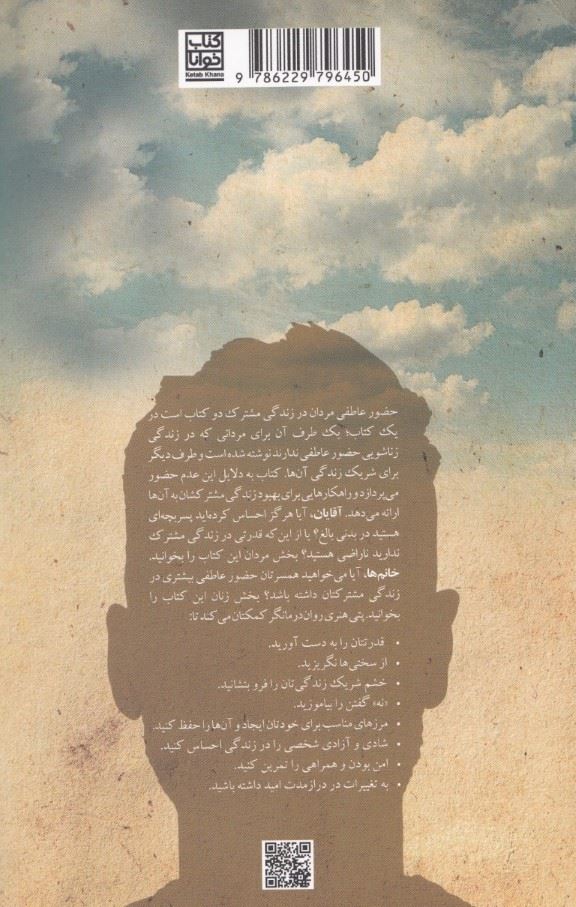 کتاب
خوانا
Ketab Khana
9 786229 796450
حضور عاطفی مردان در زندگی مشترک دو کتاب است در
یک کتاب؛ یک طرف آن برای مردانی که در زندگی
زناشویی حضور عاطفی ندارند نوشته شده است و طرف دیگر
برای شریک زندگی آن‌ها. کتاب به دلایل این عدم حضور
می‌پردازد و راهکارهایی برای بهبود زندگی مشترکشان به آن‌ها
ارائه می‌دهد. آقایان، آیا هرگز احساس کرده‌اید پسربچه‌ای
هستید در بدنی بالغ؟ یا از این‌که قدرتی در زندگی مشترک
ندارید ناراضی هستید؟ بخش مردان این کتاب را بخوانید.
خانم‌ها، آیا می‌خواهید همسرتان حضور عاطفی بیشتری در
زندگی مشترکتان داشته باشد؟ بخش زنان این کتاب را
بخوانید. پتی هنری روان‌درمانگر کمکتان می‌کند تا:
• قدرتتان را به دست آورید.
• از سختی‌ها نگریزید.
• خشم شریک زندگی‌تان را فرو بنشانید.
• «نه» گفتن را بیاموزید.
• مرزهای مناسب برای خودتان ایجاد و آن‌ها را حفظ کنید.
• شادی و آزادی شخصی را در زندگی احساس کنید.
• امن بودن و همراهی را تمرین کنید.
• به تغییرات در درازمدت امید داشته باشید.